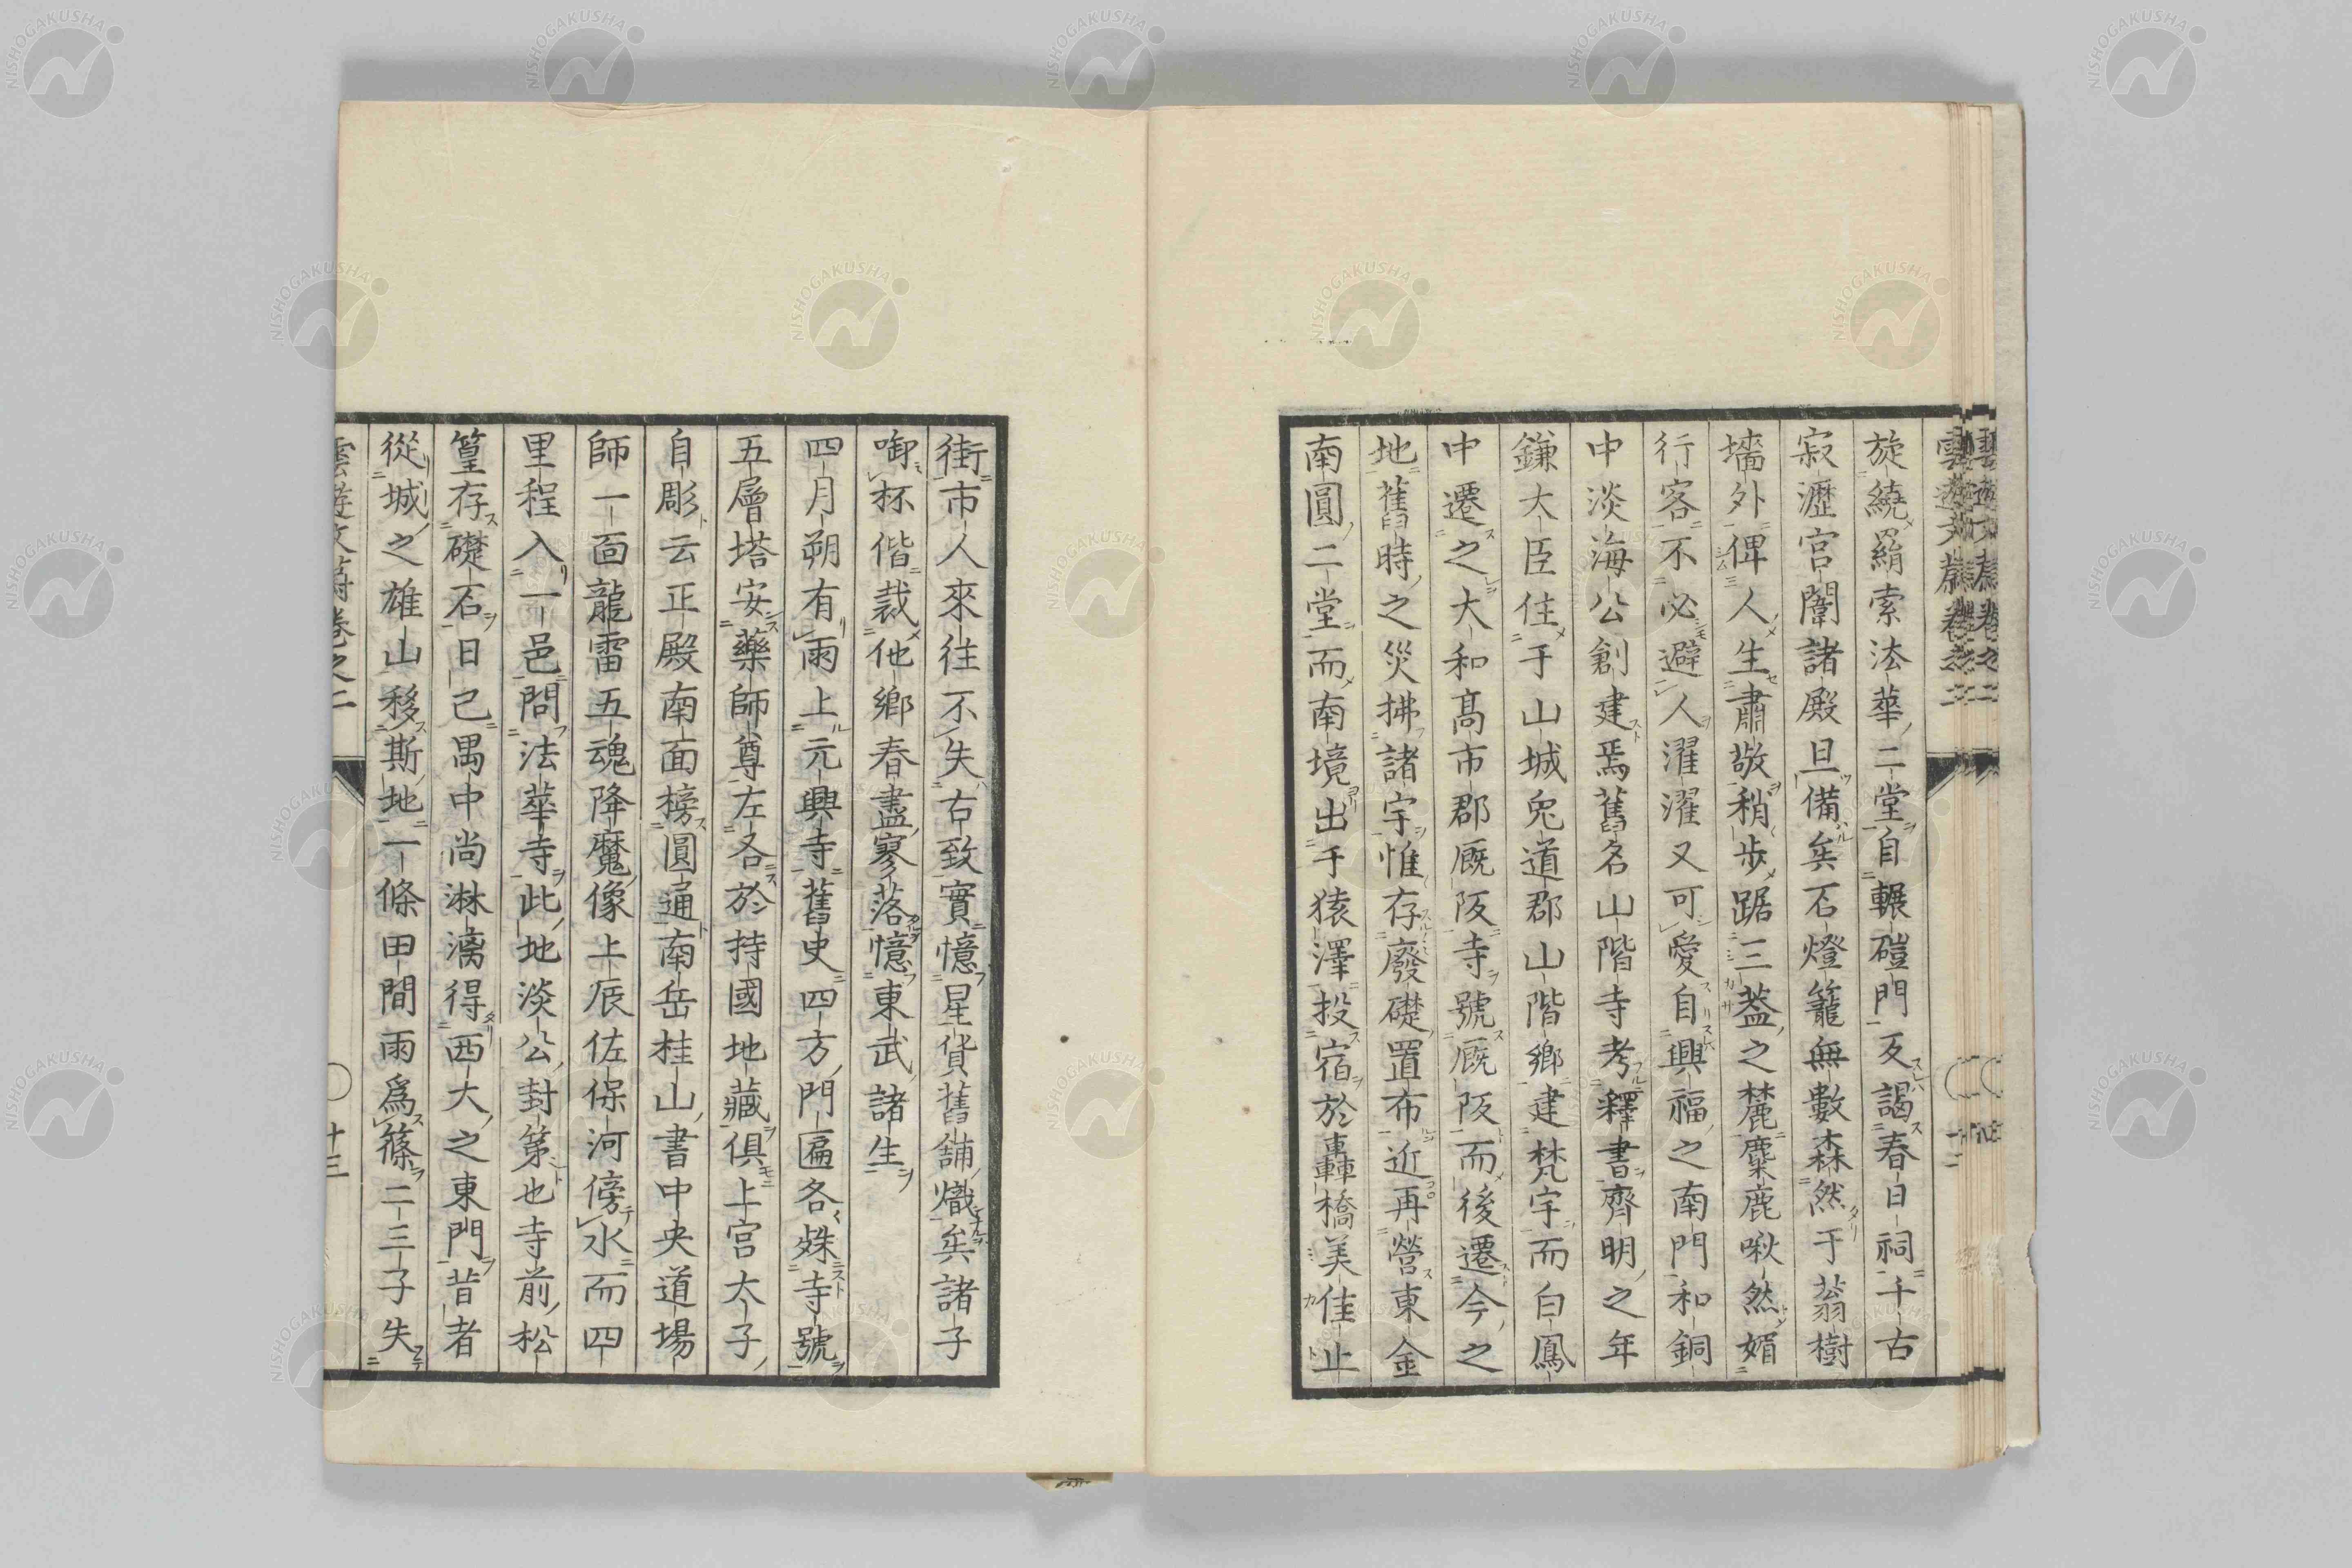 旋繞羂索法華二堂自輾磑門反謁春日祠千古
寂瀝宮闈諸殿旦備矣石燈籠無數森然于蓊樹
墻外俾人生肅敬稍歩踞三葢之麓麋鹿啾然媚
行客不必避人濯濯又可愛自興福之南門和銅
中淡海公創建焉舊名山階寺考釋書齊明之年
鎌大臣住于山城兎道郡山階鄉建梵宇而白鳳
中遷之大和髙市郡厩阪寺號厩阪而後遷今之
地舊時之災拂諸宇惟存廢礎置布近再營東金
南圓二堂而南境出于猿澤投宿於轟橋美佳止
街市人來往不失古致實憶星貨舊舖熾矣諸子
啣杯偕裁他鄉春盡寥落憶東武諸生
四月朔有雨上元興寺舊史四方門匾各殊寺號
五層塔安藥師尊左各於持國地藏俱上宮太子
自彫云正殿南面榜圓通南岳桂山書中央道場
師一面龍雷五魂降魔像上辰佐保河傍水而四
里程入一邑問法華寺此地淡公封第也寺前松
篁存礎石日已禺中尚淋漓得西大之東門昔者
從城之雄山移斯地一條田間雨爲篠二三子失
雲遊文蔚卷之二
十三